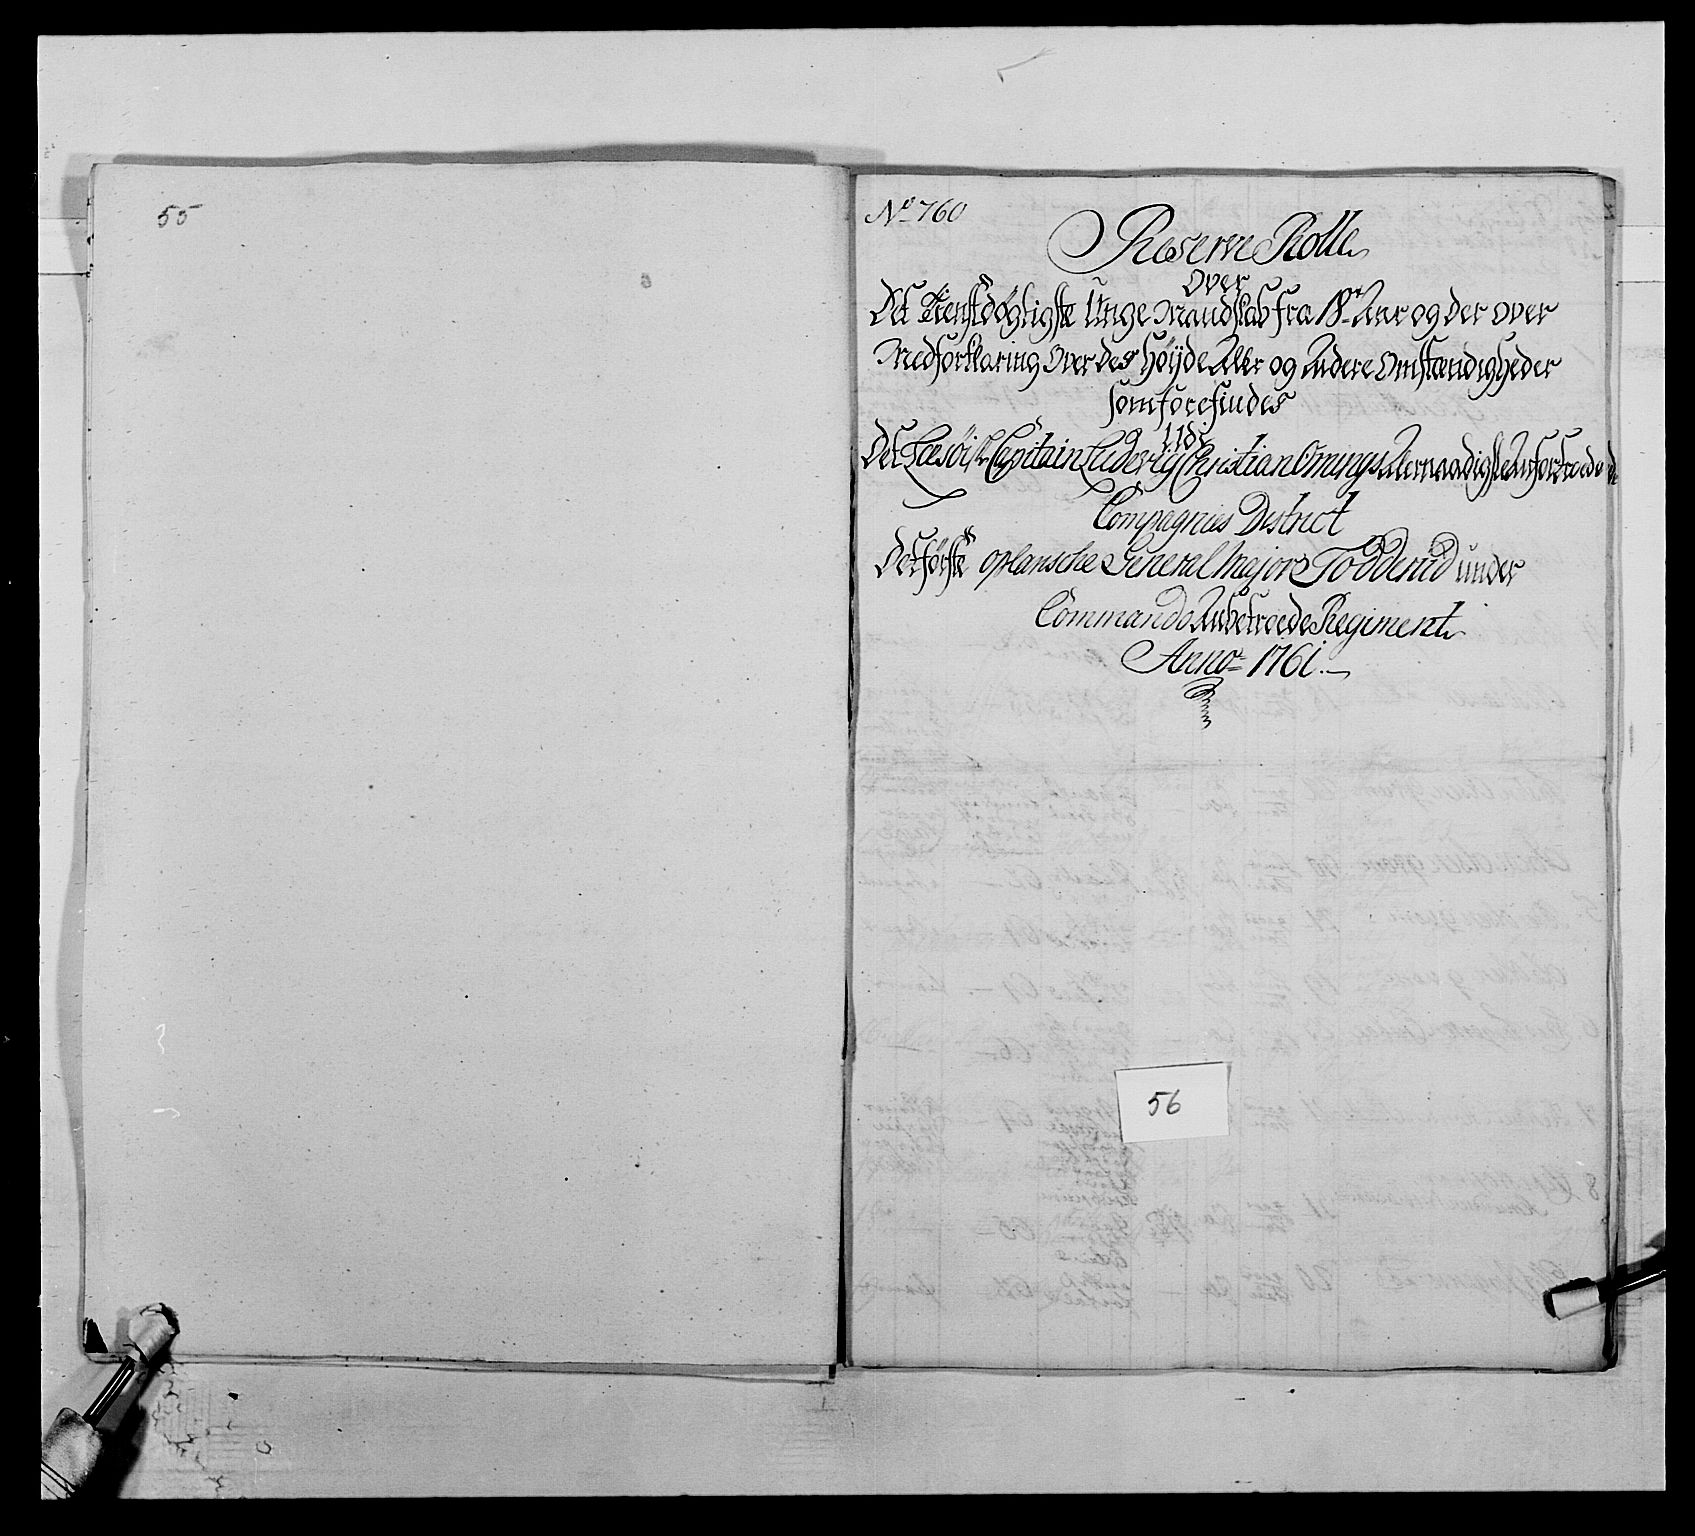 55
No 760
Reserve Rolle
Over
Det Tienstdøgtigste Unge Mandskab fra 18te Aar og der over
Med forklaring Over Des Høyde Aller og Andere Omstændigheder
som forefindes
Udi
Det Læsøiske Capitain Ludevig Christian Onsings Allernaadigste Anfortroede
Compagnies District
Det første oplansche General Majors Todderud under
Commando Anbetroede Regiment
Anno 1761.
56